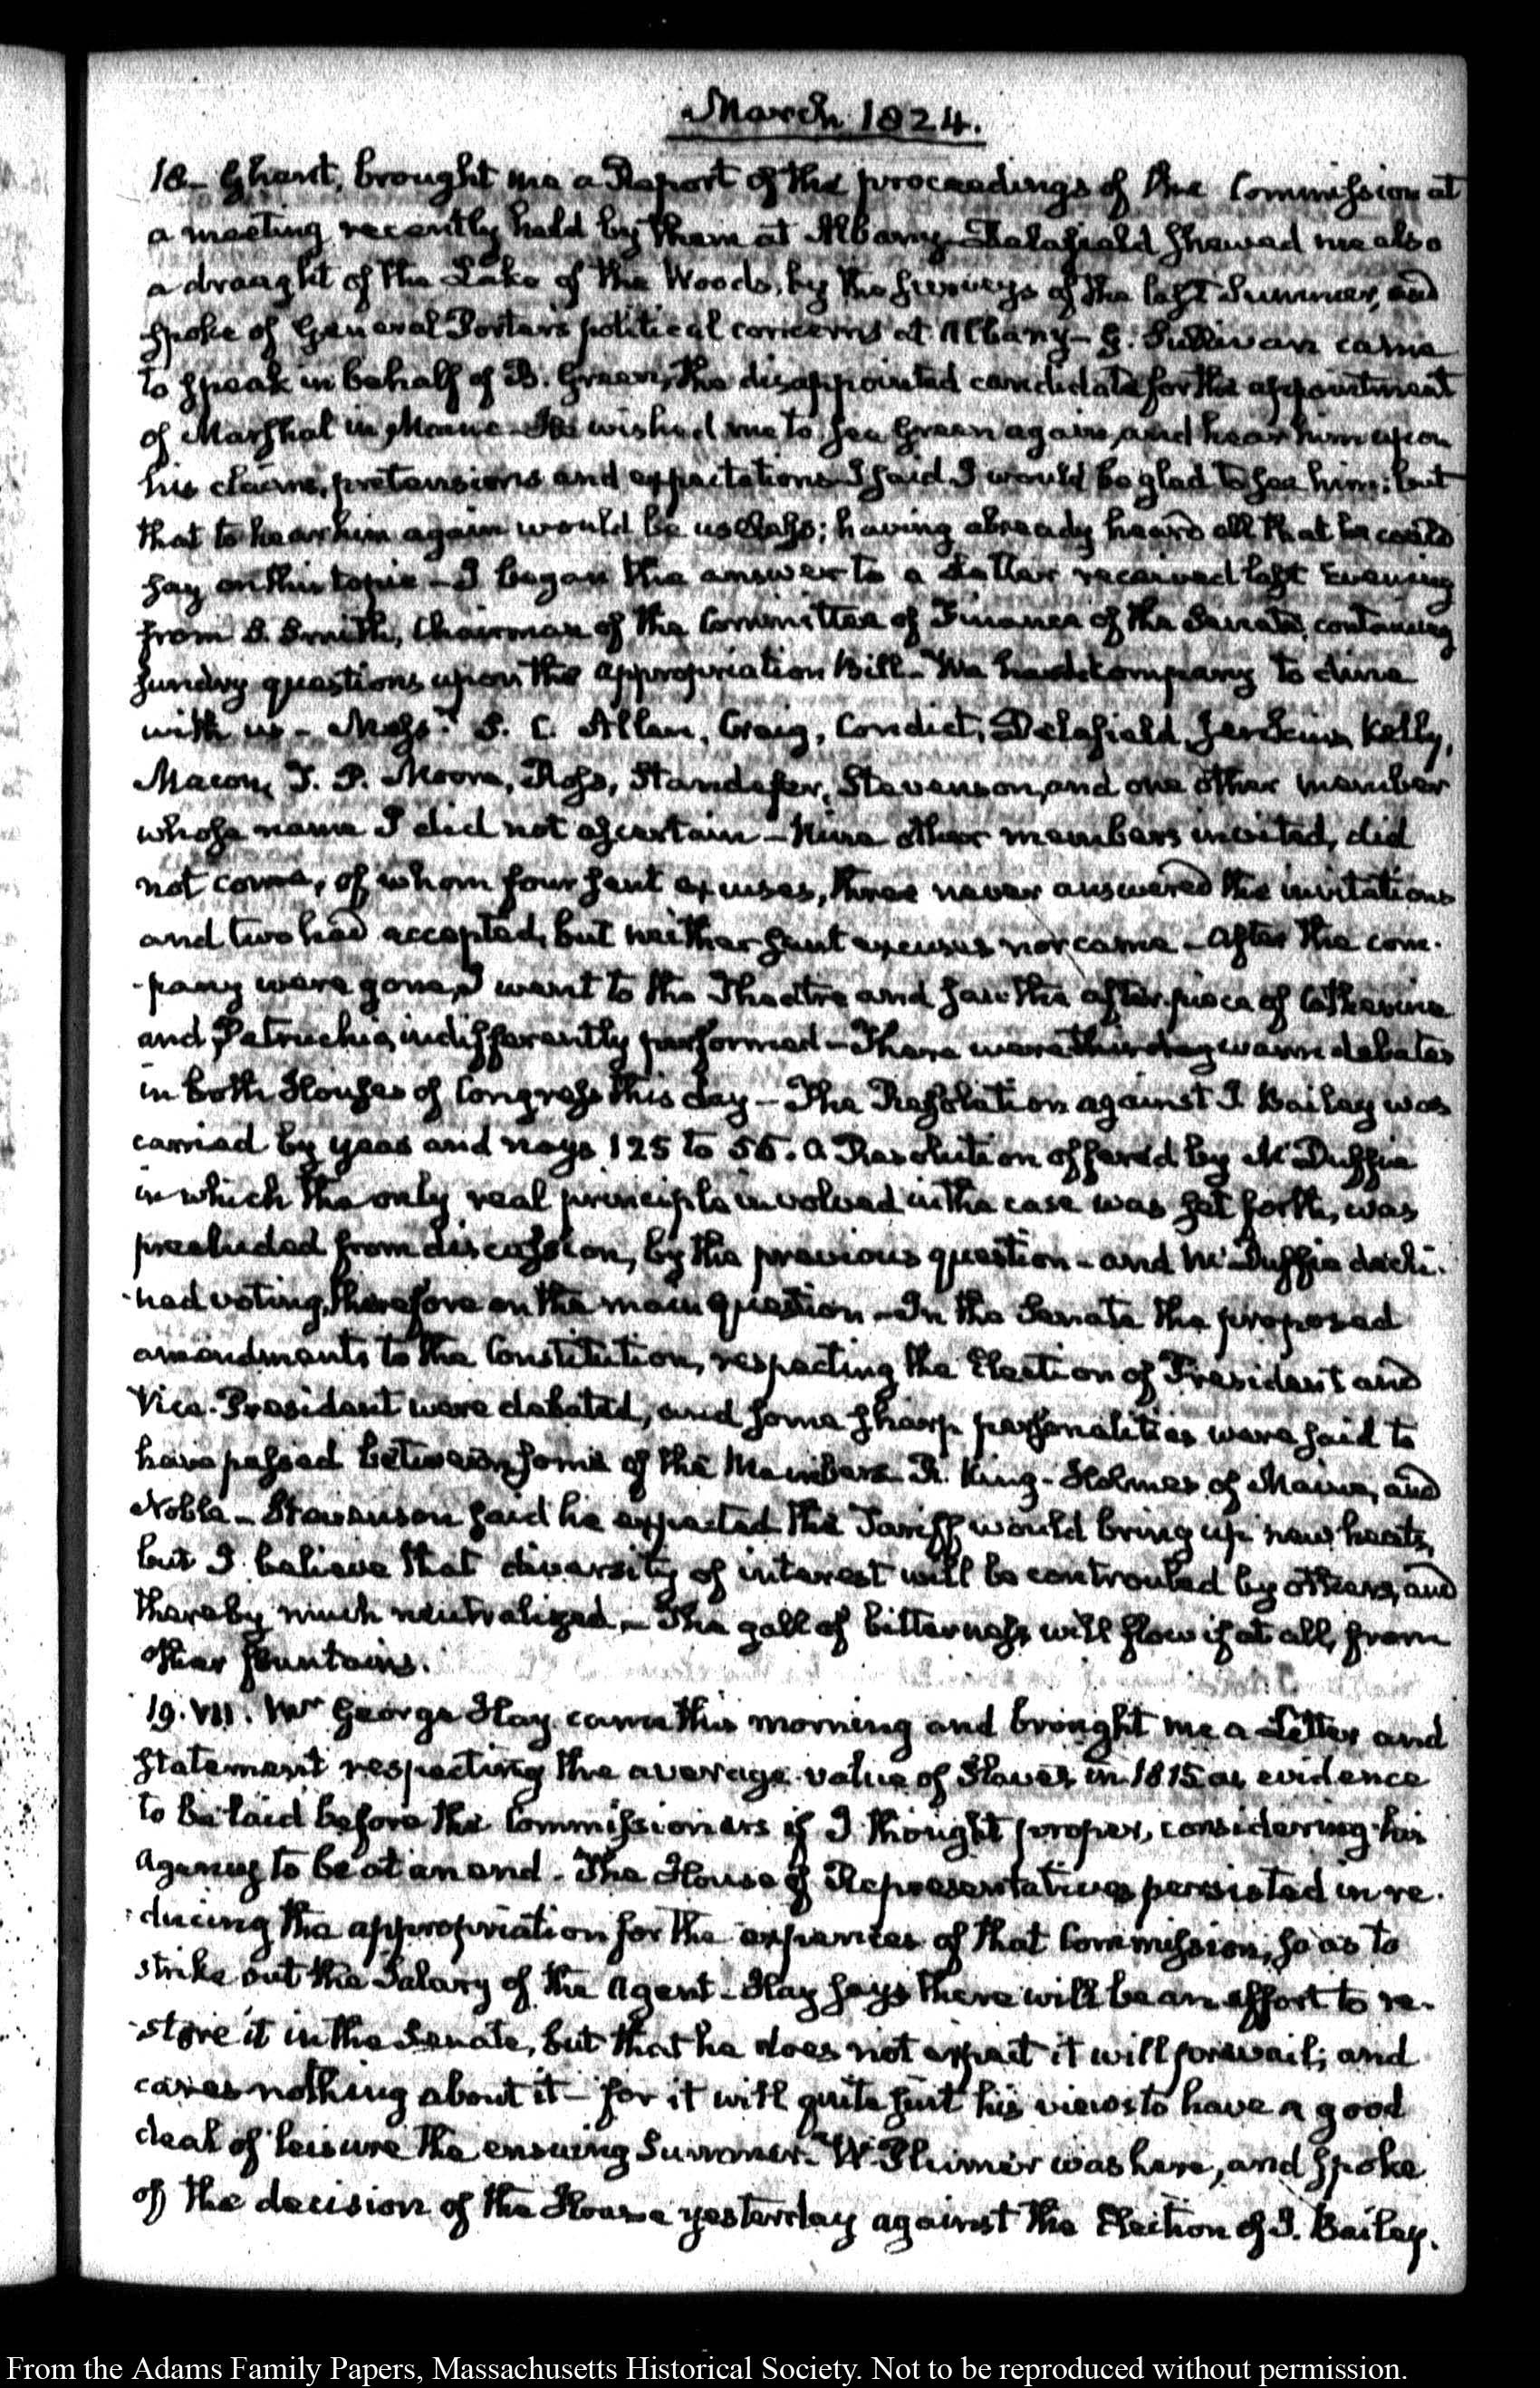 March 1824.
18— Ghent, brought me a Report of the proceedings of the Commission at
a meeting recently held by them at Albany— Delafield shewed me also
a draught of the Lake of the Woods, by the surveys of the last Summer, and
spoke of General Porter's political concerns at Albany— G. Sullivan came
to speak in behalf of B. Green, the disappointed candidate for the appointment
of Marshal in Maine— He wished me to see Green again, and hear him upon
his claims, pretensions and expectations— I said I would be glad to see him; but
that to hear him again would be useless; having already heard all that he could
say on this topic— I began the answer to a Letter received last Evening
from S. Smith, Chairman of the Committee of Finance of the Senate, containing
sundry questions upon the appropriation Bill— We had company to dine
with us— Messrs. S. C. Allen, Craig, Condict, Delafield, Jenkins, Kelly,
Macon, T. P. Moore, Ross, Standefer, Stevenson, and one other member
whose name I did not ascertain— Nine other members invited, did
not come, of whom four sent excuses, three never answered the invitations
and two had accepted, but neither sent excuses nor came— After the com-
-pany were gone, I went to the Theatre and saw the after-piece of Catherine
and Petruchio, indifferently performed— There were this day warm debates
in both Houses of Congress this day— The Resolution against J. Bailey was
carried by yeas and nays 125 to 55. A Resolution offered by McDuffie
in which the only real principle involved in the case was set forth, was
precluded from discussion, by the previous question— and McDuffie decli-
-ned voting, therefore on the main question— In the Senate the proposed
amendments to the Constitution, respecting the Election of President and
Vice-President were debated, and some sharp personalities were said to
have passed between some of the Members— R. King— Holmes of Maine, and
Noble— Stevenson said he expected the Tariff would bring up new heats,
but I believe that diversity of interest will be controuled by others, and
thereby much neutralized.— The gall of bitterness will flow if at all, from
other fountains.
19. VII. Mr George Hay came this morning and brought me a Letter and
statement respecting the average value of Slaves in 1815 as evidence
to be laid before the Commissioners if I thought proper, considering his
Agency to be at an end— The House of Representatives persisted in re-
-ducing the appropriation for the expences of that Commission, so as to
strike out the Salary of the Agent— Hay says there will be an effort to re-
-store it in the Senate, but that he does not expect it will prevail; and
cares nothing about it— for it will quite suit his views to have a good
deal of leisure the ensuing Summer— W. Plumer was here, and spoke
of the decision of the House yesterday against the Election of J. Bailey.
From the Adams Family Papers, Massachusetts Historical Society. Not to be reproduced without permission.